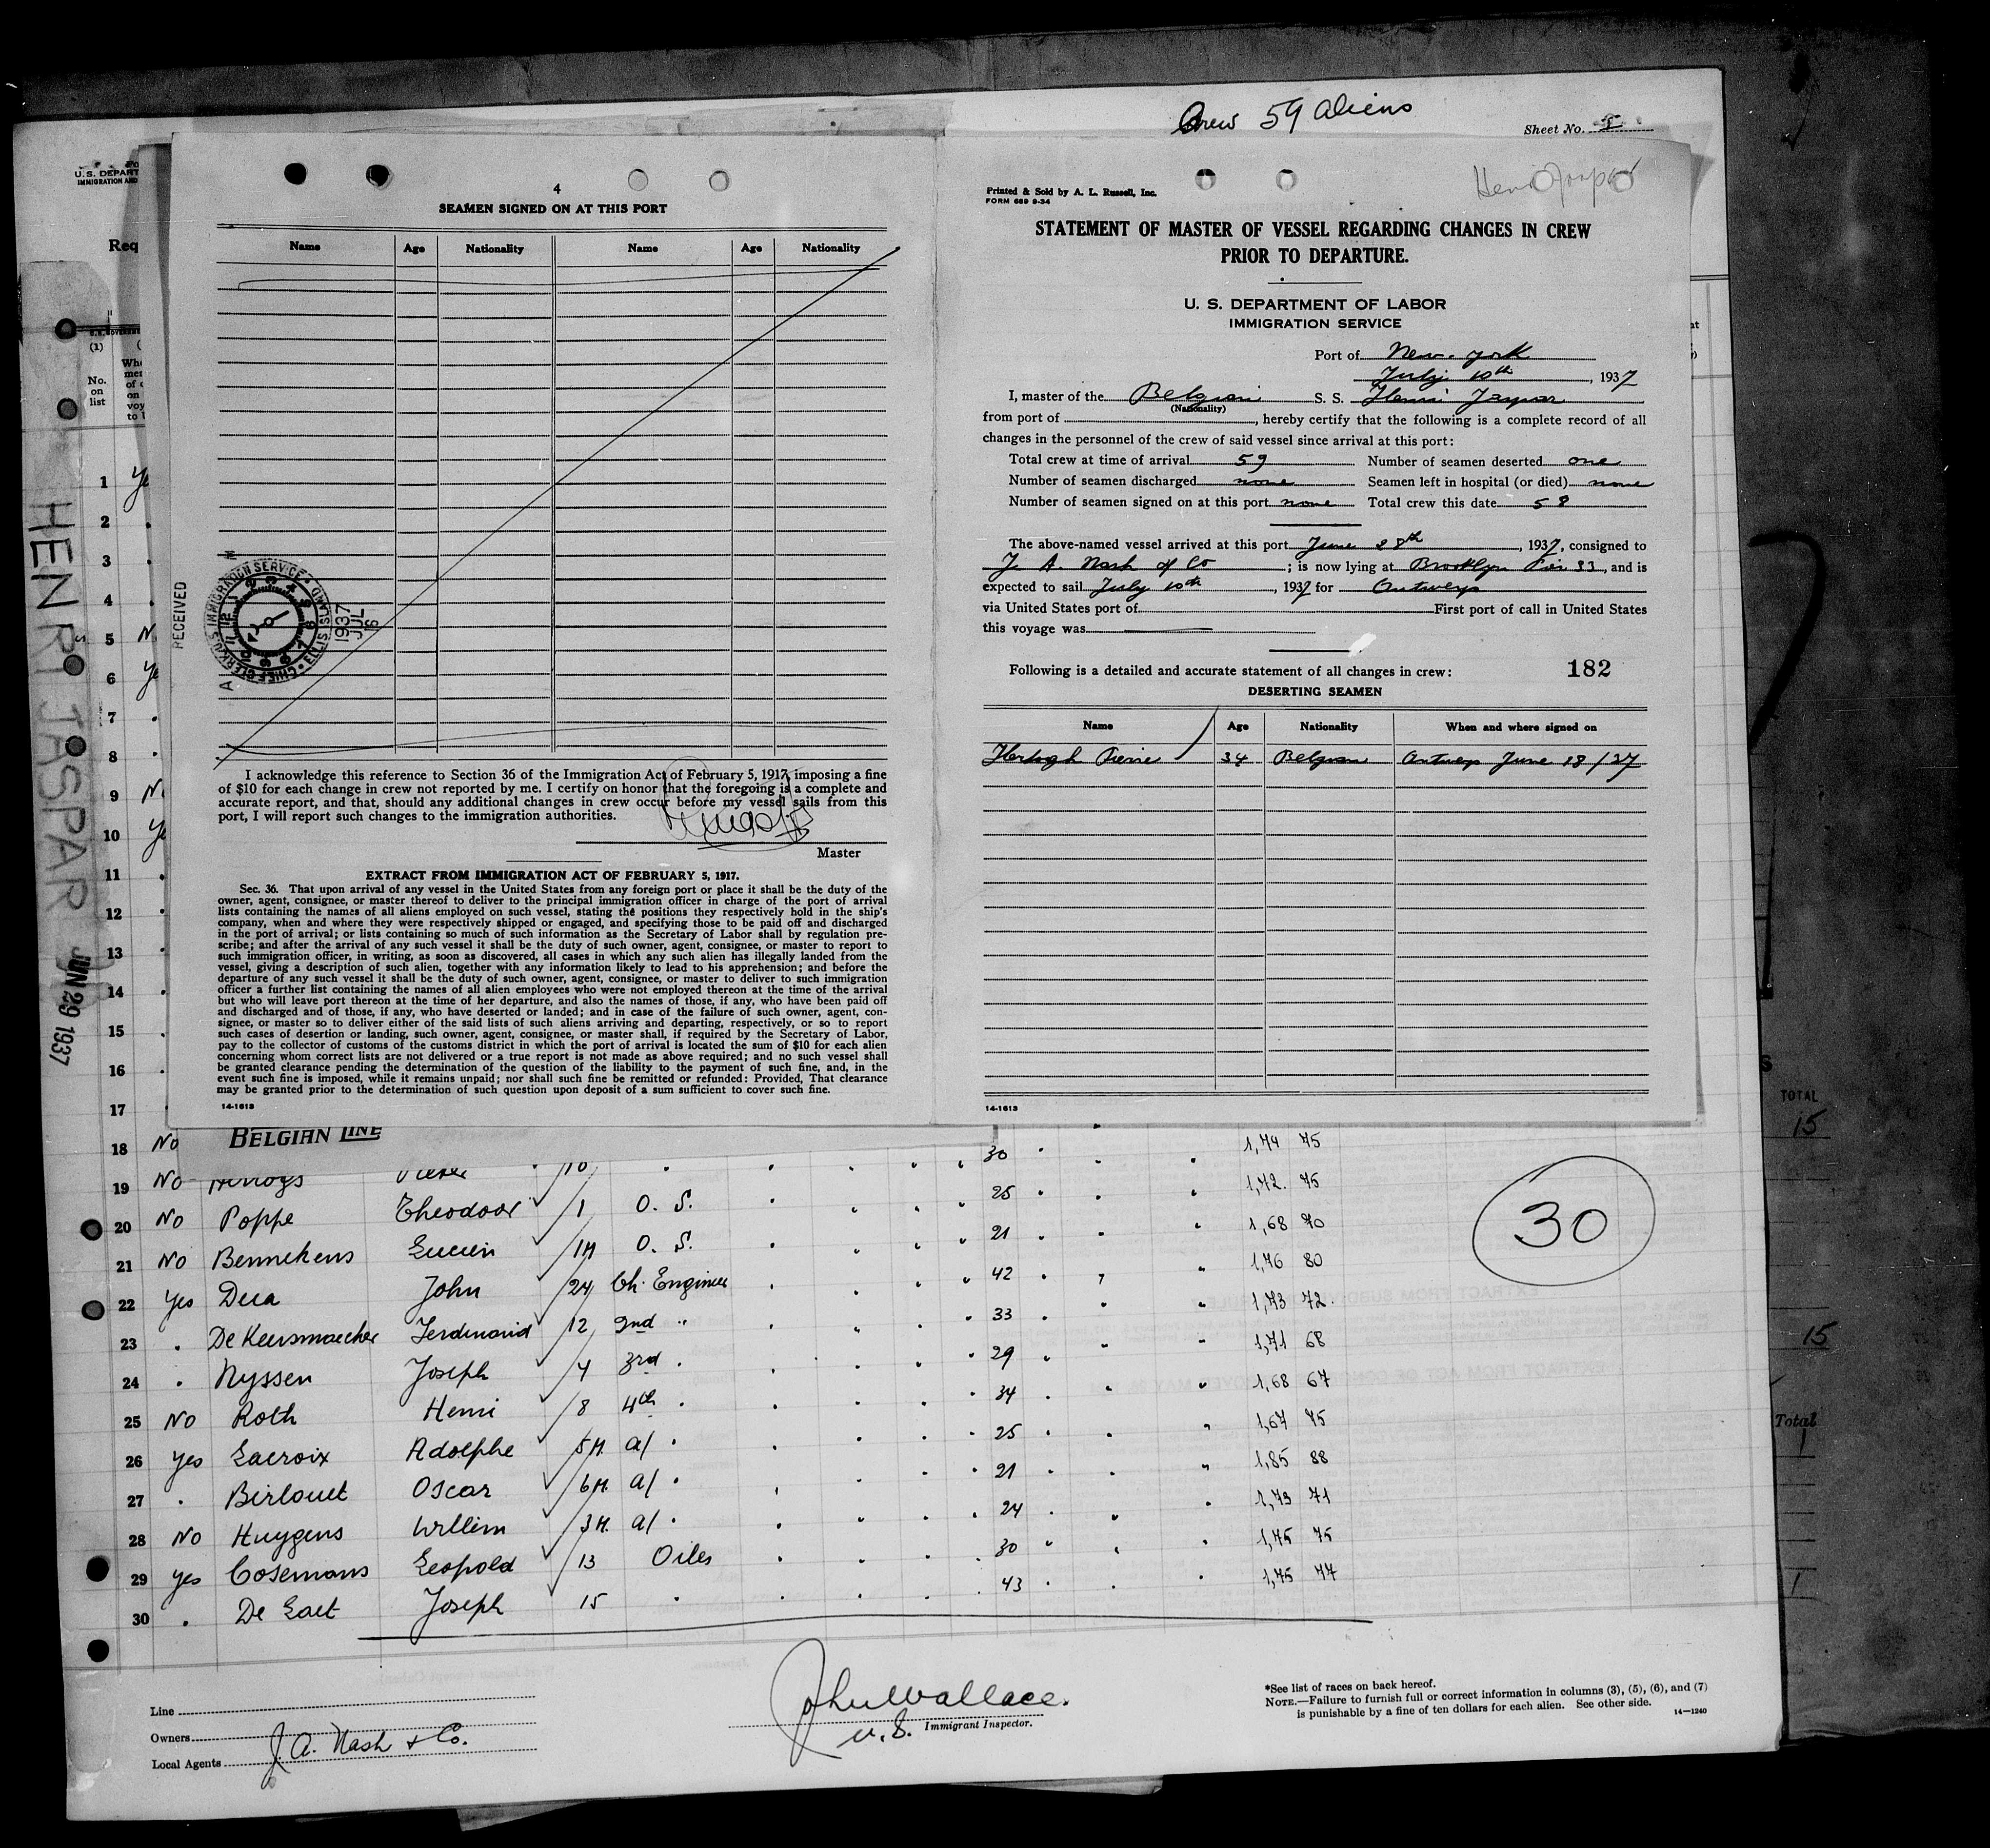 Crew 59 aliens
Sheet No. 5
U. S. DEPART
IMMIGRATION AND
Req
(1)
No.
on
list
HENRI JASPAR
JUN 29 1937
4
SEAMEN SIGNED ON AT THIS PORT
Name Age Nationality Name Age Nationality
RECEIVED
U.S. IMMIGRATION SERVICE
ELLIS ISLAND
CHIEF CLERK
1937
JUL
16
I acknowledge this reference to Section 36 of the Immigration Act of February 5, 1917, imposing a fine
of $10 for each change in crew not reported by me. I certify on honor that the foregoing is a complete and
accurate report, and that, should any additional changes in crew occur before my vessel sails from this
port, I will report such changes to the immigration authorities.
Master
EXTRACT FROM IMMIGRATION ACT OF FEBRUARY 5, 1917.
Sec. 36. That upon arrival of any vessel in the United States from any foreign port or place it shall be the duty of the
owner, agent, consignee, or master thereof to deliver to the principal immigration officer in charge of the port of arrival
lists containing the names of all aliens employed on such vessel, stating the positions they respectively hold in the ship's
company, when and where they were respectively shipped or engaged, and specifying those to be paid off and discharged
in the port of arrival; or lists containing so much of such information as the Secretary of Labor shall by regulation pre-
scribe; and after the arrival of any such vessel it shall be the duty of such owner, agent, consignee, or master to report to
such immigration officer, in writing, as soon as discovered, all cases in which any such alien has illegally landed from the
vessel, giving a description of such alien, together with any information likely to lead to his apprehension; and before the
departure of any such vessel it shall be the duty of such owner, agent, consignee, or master to deliver to such immigration
officer a further list containing the names of all alien employees who were not employed thereon at the time of the arrival
but who will leave port thereon at the time of her departure, and also the names of those, if any, who have been paid off
and discharged and of those, if any, who have deserted or landed; and in case of the failure of such owner, agent, con-
signee, or master so to deliver either of the said lists of such aliens arriving and departing, respectively, or so to report
such cases of desertion or landing, such owner, agent, consignee, or master shall, if required by the Secretary of Labor,
pay to the collector of customs of the customs district in which the port of arrival is located the sum of $10 for each alien
concerning whom correct lists are not delivered or a true report is not made as above required; and no such vessel shall
be granted clearance pending the determination of the question of the liability to the payment of such fine, and, in the
event such fine is imposed, while it remains unpaid; nor shall such fine be remitted or refunded: Provided, That clearance
may be granted prior to the determination of such question upon deposit of a sum sufficient to cover such fine.
14-1613
Henri Jaspar
Printed & Sold by A. L. Russell, Inc.
FORM 689 9-34
STATEMENT OF MASTER OF VESSEL REGARDING CHANGES IN CREW
PRIOR TO DEPARTURE.
U. S. DEPARTMENT OF LABOR
IMMIGRATION SERVICE
Port of New-york
July 10th, 1937
I, master of the Belgian S. S. Henri Jaspar
(Nationality)
from port of , hereby certify that the following is a complete record of all
changes in the personnel of the crew of said vessel since arrival at this port:
Total crew at time of arrival 59 Number of seamen deserted one
Number of seamen discharged none Seamen left in hospital (or died) none
Number of seamen signed on at this port none Total crew this date 58
The above-named vessel arrived at this port June 28th, 1937, consigned to
J. A. Nash & Co; is now lying at Brooklyn Pier 33, and is
expected to sail July 10th, 1937 for Antwerp
via United States port of First port of call in United States
this voyage was
Following is a detailed and accurate statement of all changes in crew: 182
DESERTING SEAMEN
Name Age Nationality When and where signed on
Hertogh Pierre 34 Belgian Antwerp June 18/37
14-1613
BELGIAN LINE
1 Ye
2
3
4
5 N
6 Ye
7
8
9 N
10 Ye
11
12
13
14
15
16
17
18 No 30 1,74 75
19 No 10 25 1,72 75
20 No Poppe Theodoor 1 O. S. 21 1,68 70
21 No Bennekens Lucien 1M O. S. 42 1,76 80
22 Yes Dua John 24 Ch. Engineer 33 1,73 72
23 . De Keersmaecker Ferdinand 12 2nd " 29 1,71 68
24 . Nyssen Joseph 4 3rd . 34 1,68 67
25 No Roth Henri 8 4th . 25 1,67 75
26 Yes Lacroix Adolphe 5M. a/ . 21 1,85 88
27 . Birlouet Oscar 6M. a/ . 24 1,73 71
28 No Huygens Willem 3M. a/ . 30 1,75 75
29 Yes Cosemans Leopold 13 Oiler 43 1,75 77
30 . De Laet Joseph 15 .
30
TOTAL
15
15
Total
1
1
Line
Owners
Local Agents J. A. Nash & Co.
John Wallace.
U.S. Immigrant Inspector.
*See list of races on back hereof.
NOTE.—Failure to furnish full or correct information in columns (3), (5), (6), and (7)
is punishable by a fine of ten dollars for each alien. See other side.
14—1240